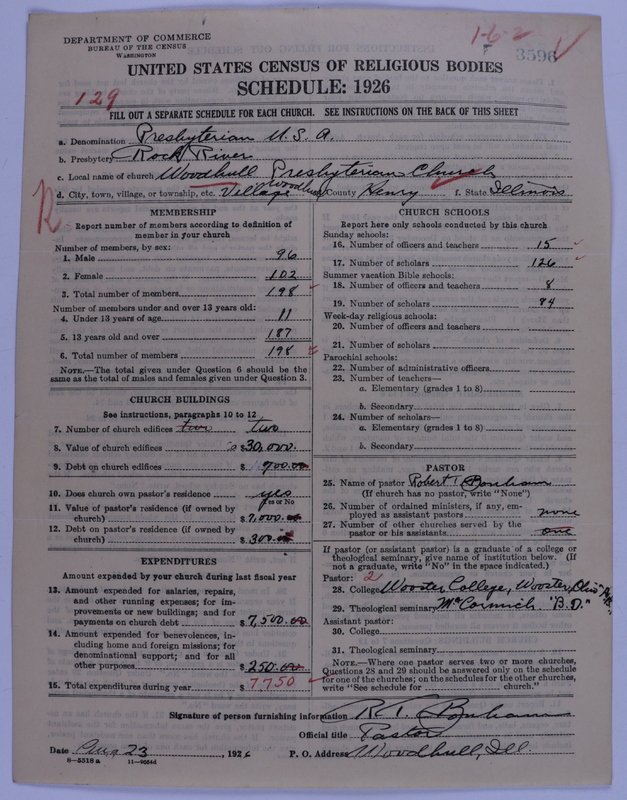 DEPARTMENT OF COMMERCE
BUREAU OF THE CENSUS
WASHINGTON
1-6-2
3596
UNITED STATES CENSUS OF RELIGIOUS BODIES
SCHEDULE: 1926
129
FILL OUT A SEPARATE SCHEDULE FOR EACH CHURCH. SEE INSTRUCTIONS ON THE BACK OF THIS SHEET
a. Denomination Presbyterian U.S.A.
b. Presbytery Rock River
c. Local name of church Woodhull Presbyterian Church
d. City, town, village, or township, etc. Village Woodhull County Henry f. State Illinois
MEMBERSHIP
Report number of members according to definition of
member in your church
Number of members, by sex:
1. Male 96
2. Female 102
3. Total number of members 198
Number of members under and over 13 years old:
4. Under 13 years of age 11
5. 13 years old and over 187
6. Total number of members 198
NOTE.—The total given under Question 6 should be
same as the total of males and females given under Question 3.
CHURCH BUILDINGS
See instructions, paragraphs 10 to 12
7. Number of church edifices two two
8. Value of church edifices $30,000.
9. Debt on church edifices $ 900.00
10. Does church own pastor's residence yes
Yes or No
11. Value of pastor's residence (if owned by
church) $7,000.00
12. Debt on pastor's residence (if owned by
church) $300.00
EXPENDITURES
Amount expended by your church during last fiscal year
13. Amount expended for salaries, repairs,
and other running expenses; for im-
provements or new buildings; and for
payments on church debt $7,500.00
14. Amount expended for benevolences, in-
cluding home and foreign missions; for
denominational support; and for all
other purposes $250.00
15. Total expenditures during year $7750
CHURCH SCHOOLS
Report here only schools conducted by this church
Sunday schools:
16. Number of officers and teachers 15
17. Number of scholars 126
Summer vacation Bible schools:
18. Number of officers and teachers 8
19. Number of scholars 84
Week-day religious schools:
20. Number of officers and teachers
21. Number of scholars
Parochial schools:
22. Number of administrative officers
23. Number of teachers—
a. Elementary (grades 1 to 8)
b. Secondary
24. Number of scholars—
a. Elementary (grades 1 to 8)
b. Secondary
PASTOR
25. Name of pastor Robert T. Bonham
(If church has no pastor, write "None")
26. Number of ordained ministers, if any, em-
ployed as assistant pastors none
27. Number of other churches served by the
pastor or his assistants one
If pastor (or assistant pastor) is a graduate of a college or
theological seminary, give name of institution below. (If
not a graduate, write "No" in the space indicated.)
Pastor: 2
28. College Wooster College, Wooster, Ohio "A.B."
29. Theological seminary McCormick "B.D."
Assistant pastor:
30. College
31. Theological seminary
NOTE.—Where one pastor serves two or more churches,
Questions 28 and 29 should be answered only on the schedule
for one of the churches; on the schedules for the other churches,
write "See schedule for church."
Signature of person furnishing information R. T. Bonham
Official title Pastor
Date Aug 23, 1926 P. O. Address Woodhull, Ill.
8-5518a 11-9034d